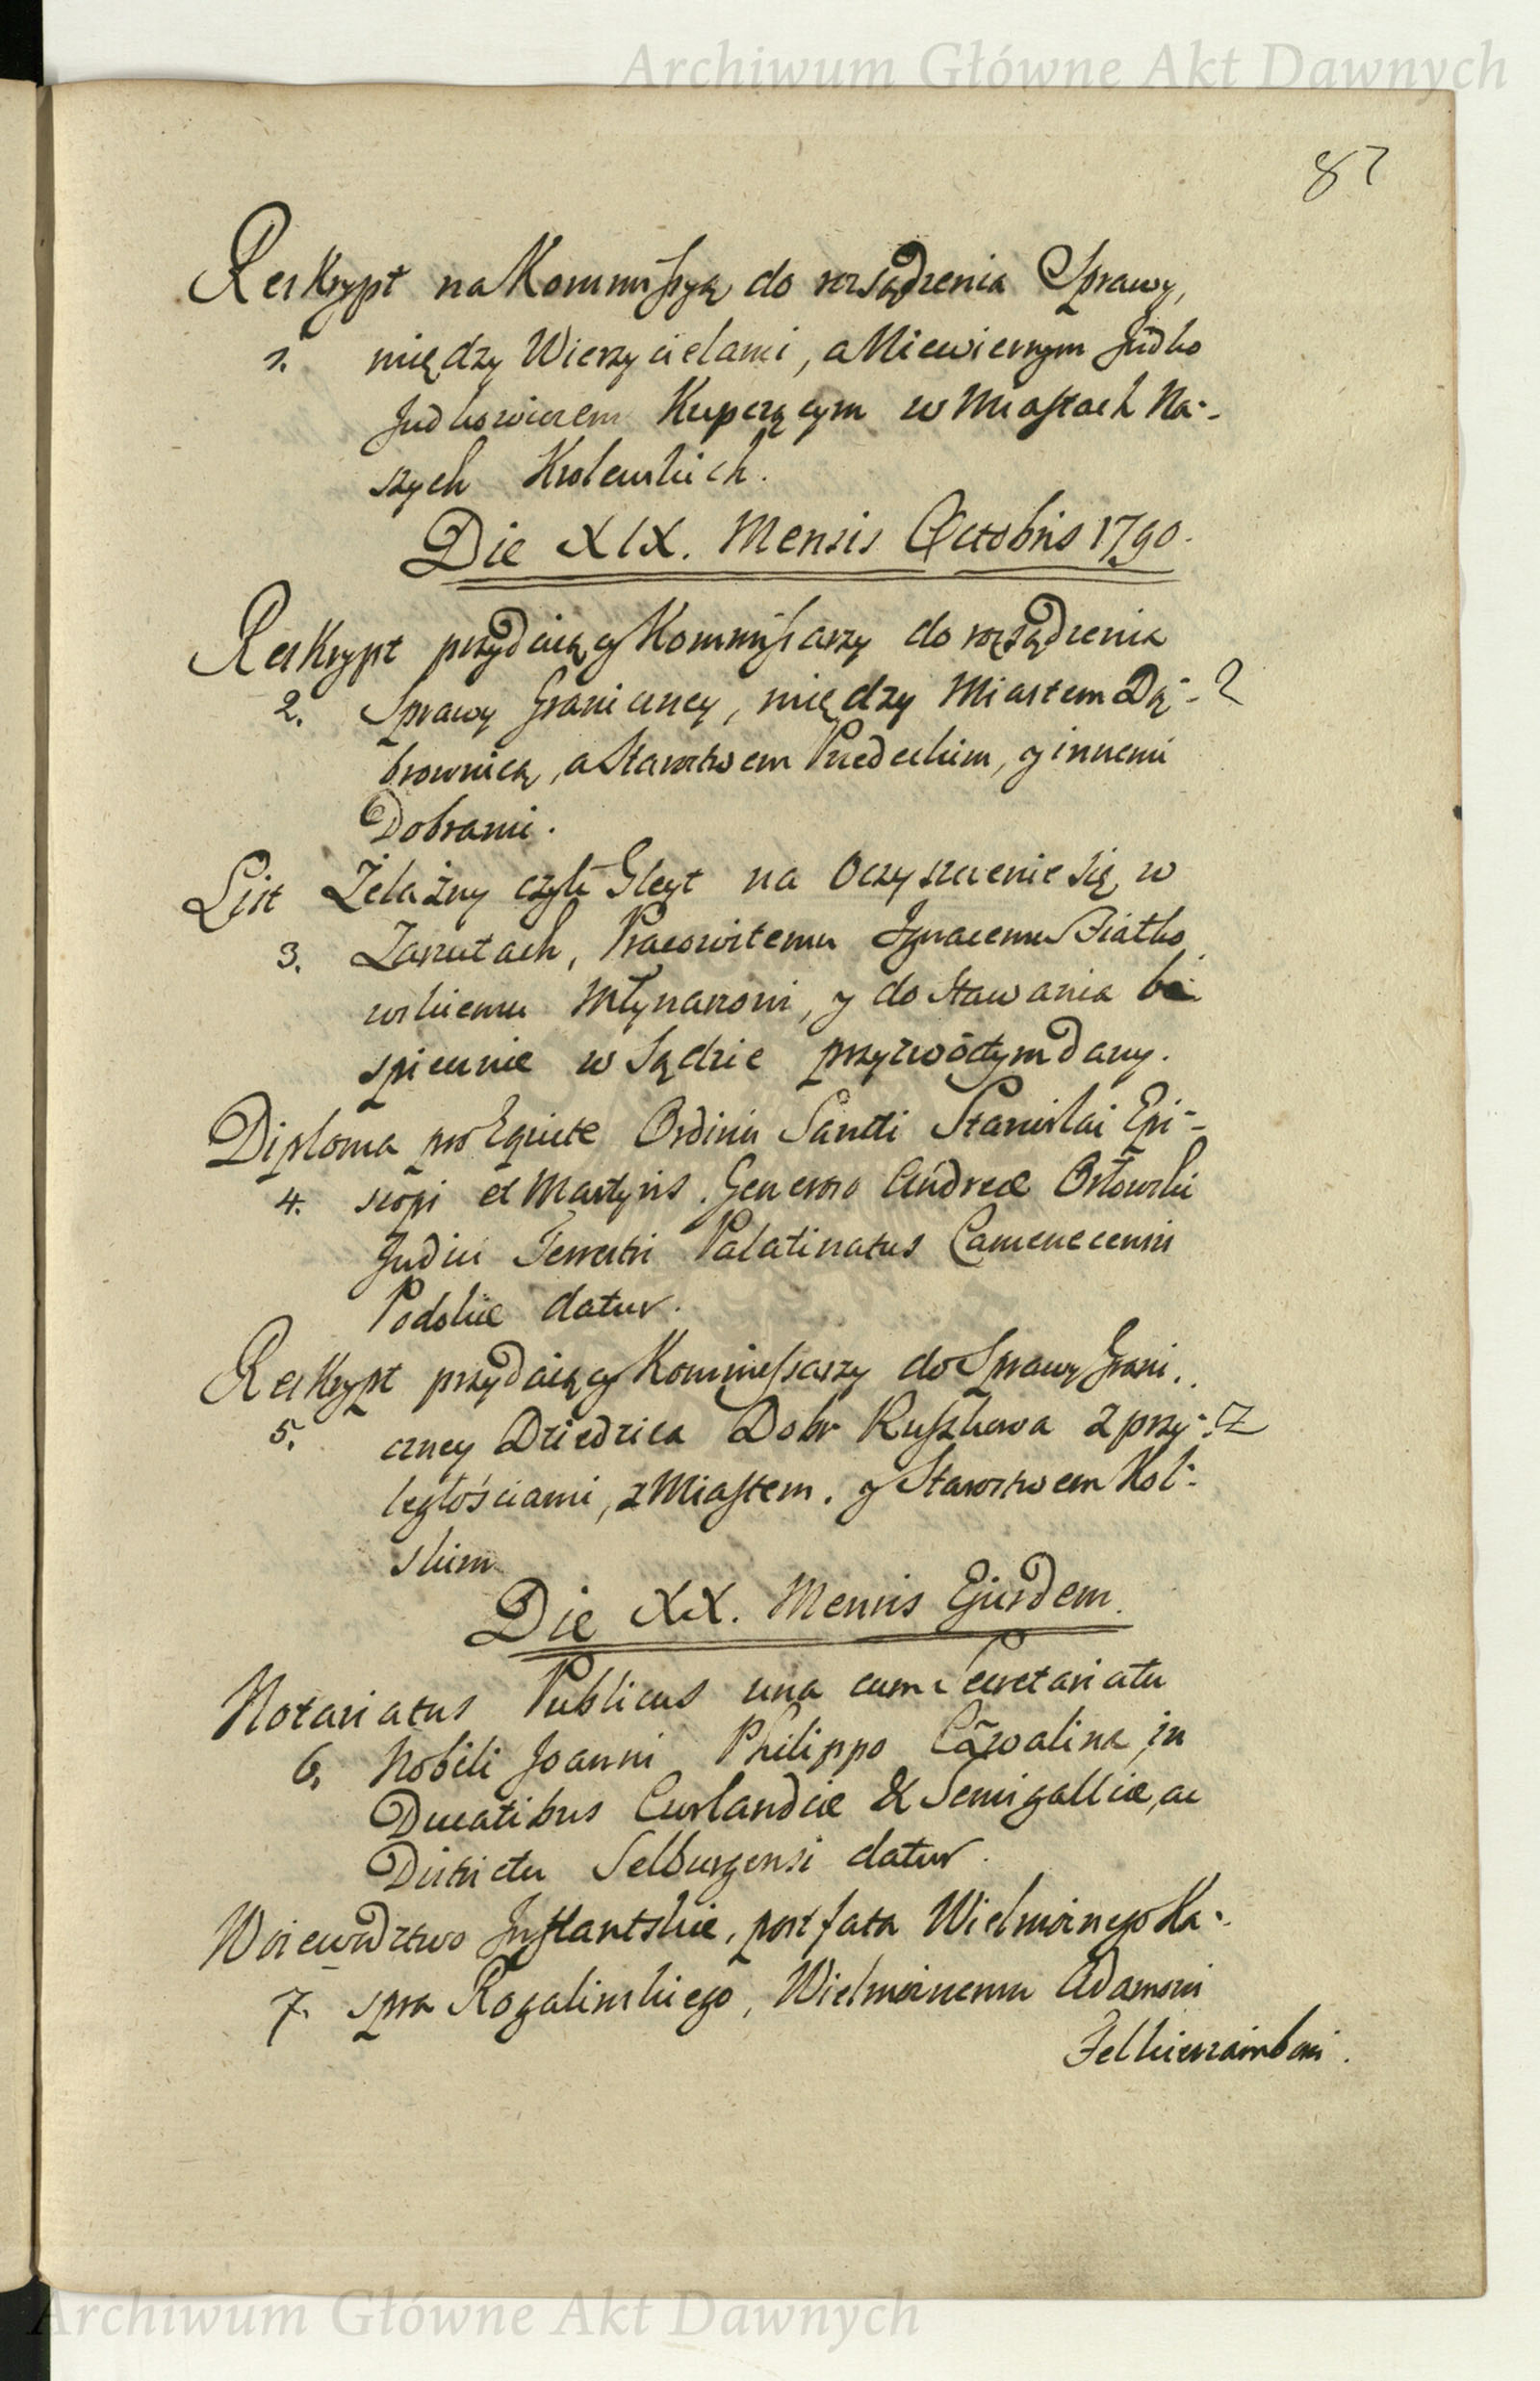 Archiwum Główne Akt Dawnych
87
Reskrypt na Kommissyą do rozsądzenia Sprawy,
1. między Wierzycielami, a Niewiernym Judko
Judkowiczem Kupczącym w Miastach Na-
szych Krolewskich.
Die XIX. Mensis Octobris 1790.
Reskrypt przydaiący Kommissarzy do rozsądzenia
2. Sprawy Graniczney, między Miastem Dą-
brownicą, a Starostwem Przedeckim, y innemi
Dobrami.
List Żelażny czyli Gleyt na Oczyszczenie się w
3. Zarzutach, Pracowitemu Ignacemu Białko
wskiemu Młynarzowi, y do stawania be-
spiecznie w Sądzie przyzwoitym dany.
Diploma pro Equite Ordinis Sancti Stanislai Epi-
4. scopi et Martyris. Generoso Andreæ Orłowski
Judici Terrestri Palatinatus Camenecensis
Podoliæ datur.
Reskrypt przydaiący Kommissarzy do Sprawy Grani-
5. czney Dziedzica Dobr Ruszkowa z przy-
ległościami, z Miastem, y Starostwem Kol-
skim
Die XX. Mensis Ejusdem.
Notariatus Publicus una cum Secretariatu
6. Nobili Joanni Philippo in
Ducatibus Curlandiæ & Semigalliæ, ac
Districtu Selburgensi datur.
Woiewodztwo Inflantskie, post fata Wielmożnego Ka-
7. spra Rogalinskiego, Wielmożnemu Adamowi
Felkierzambowi.
Archiwum Główne Akt Dawnych